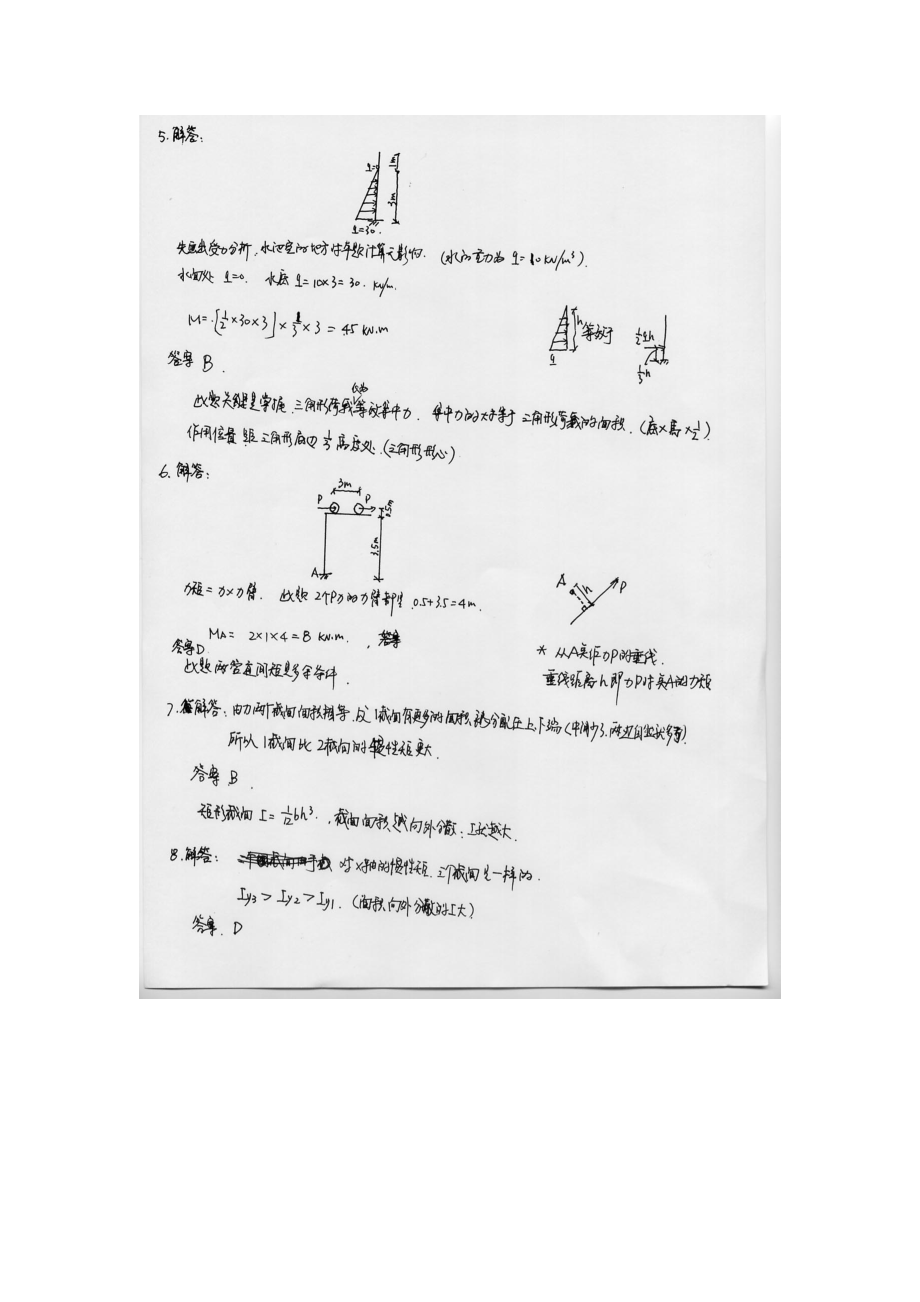 5.解答:
q=0
1m
3m
q=30.
先画出受力分析,水池空的地方对本题计算无影响. (水的重力为 q=10 kN/m³).
水面处 q=0. 水底 q=10×3=30. kN/m.
M=[½×30×3]×⅓×3=45 kN.m
h 等效于 ½qh
q ⅓h
答案 B.
此题关键是掌握 三角形荷载等效为集中力. 集中力的大小等于三角形荷载的面积. (底×高×½).
作用位置 距三角形底边 ⅓高度处.(三角形形心)
6.解答:
3m
P P
0.5m
3.5m
A
A h P
力矩=力×力臂. 此题 2个P力的力臂都是 0.5+3.5=4m.
MA= 2×1×4=8 kN.m.
答案D.
* 从A点作力P的垂线.
垂线距离h即力P对点A的力矩
此题两轮直间距是多余条件.
7.解答:由于两个截面面积相等.但1截面有更多的面积被分配在上、下端(中间少了.两边自然就多了).
所以1截面比2截面的惯性矩更大.
答案 B.
矩形截面 I=1/12bh³. ,截面面积越向外分散.I就越大.
8.解答: 对x轴的惯性矩.三个截面是一样的.
Iy3 > Iy2 > Iy1. (面积向外分散的I大)
答案. D